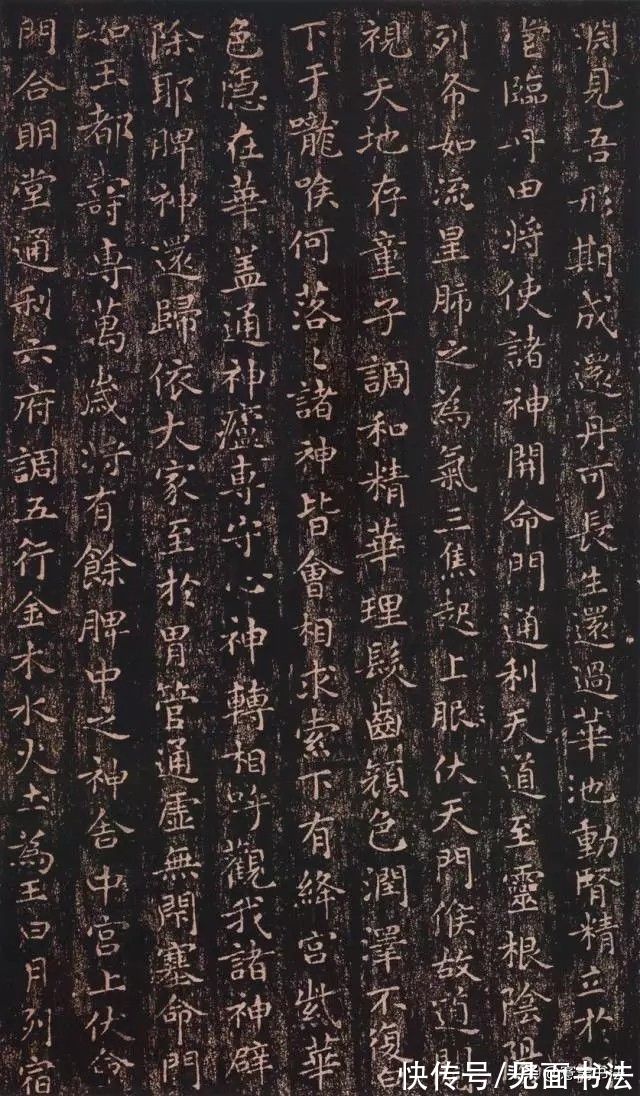 見吾形期成還丹可長生還過華池動腎精立於明
堂臨丹田將使諸神開命門通利天道至靈根陰陽
列布如流星肺之為氣三焦起上服伏天門候故道
視天地存童子調和精華理髮齒顏色潤澤不復白
下于嚨喉何落〻諸神皆會相求索下有絳宮紫華
色隱在華蓋通神廬專守心神轉相呼觀我諸神辟
除耶脾神還歸依大家至於胃管通虛無閉塞命門
如玉都壽專萬歲將有餘脾中之神舍中宮上伏命
門合明堂通利六府調五行金木水火土為王日月列宿
快传号/见面书法